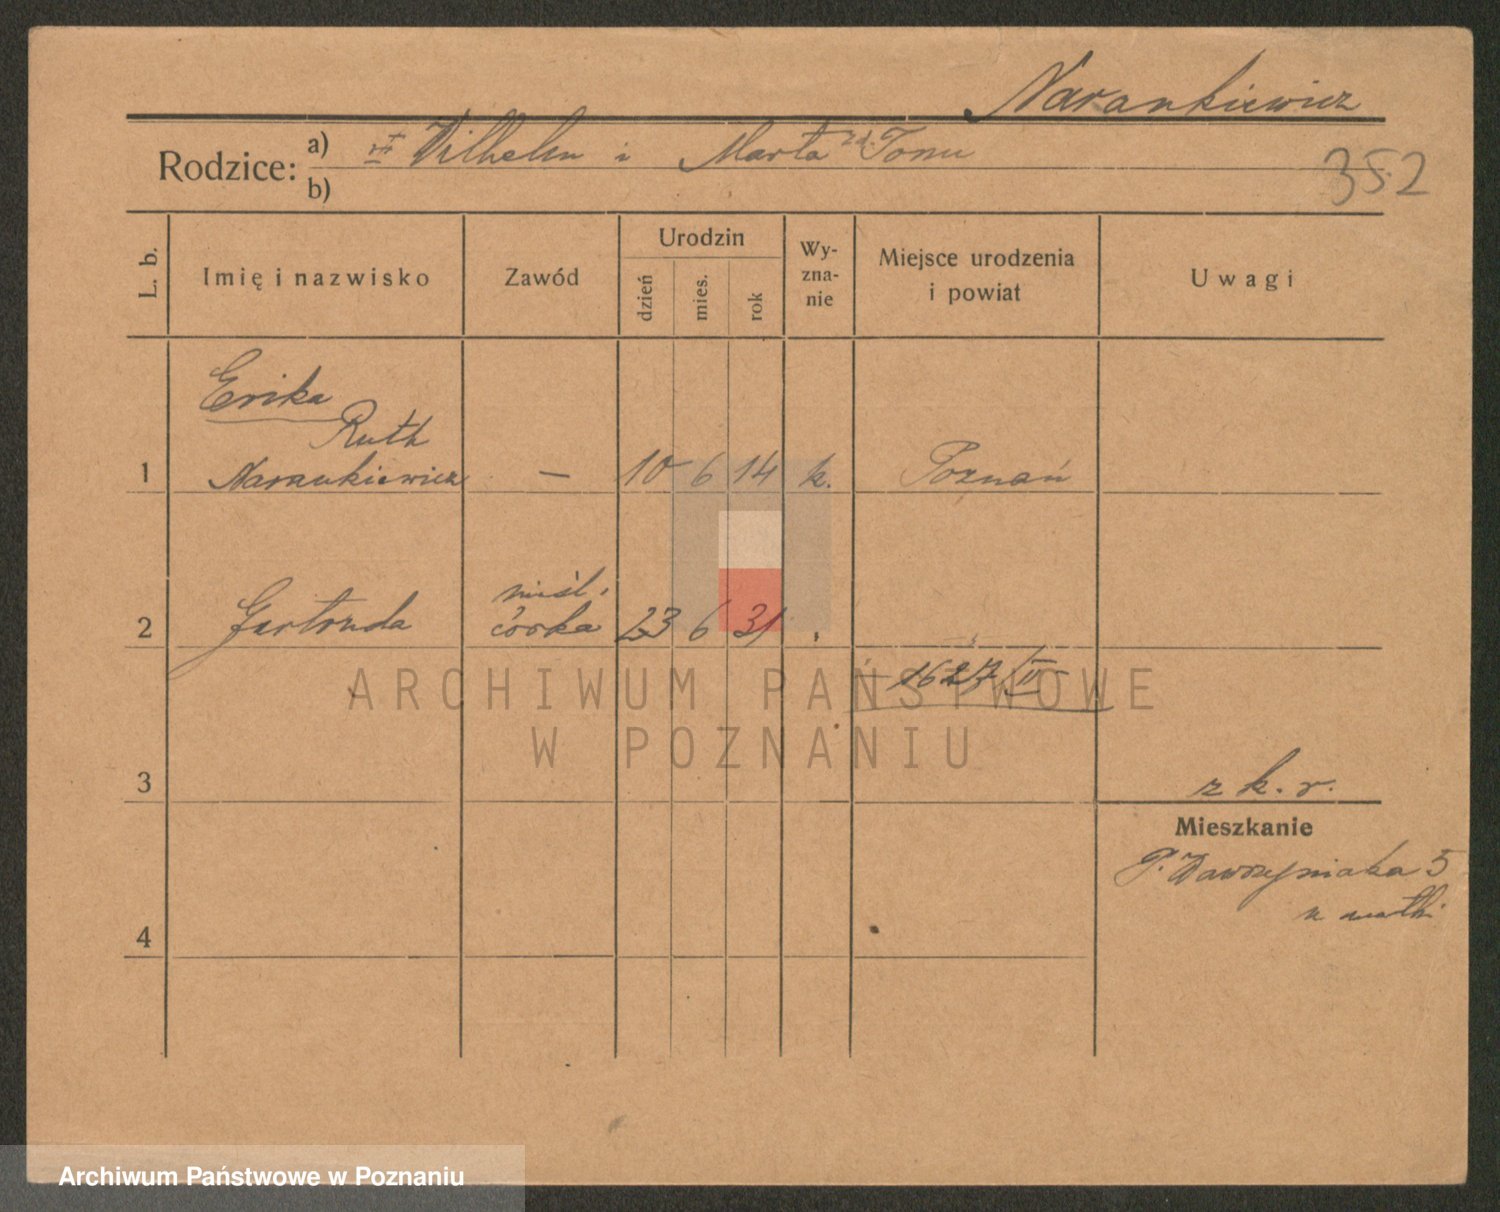 Narankiewicz
Rodzice: a) Wilhelm i Marta zd. Tonn
b)
352
L. b.
Imię i nazwisko
Zawód
Urodzin
dzień
mies.
rok
Wy-
zna-
nie
Miejsce urodzenia
i powiat
Uwagi
Erika
Ruth
1 Narankiewicz — 10 6 14 k. Poznań
nieśl.
2 Gertruda córka 23 6 31
1627/II
3
z k. r.
Mieszkanie
P. Wawrzyniaka 5
u matki
4
ARCHIWUM PAŃSTWOWE
W POZNANIU
Archiwum Państwowe w Poznaniu